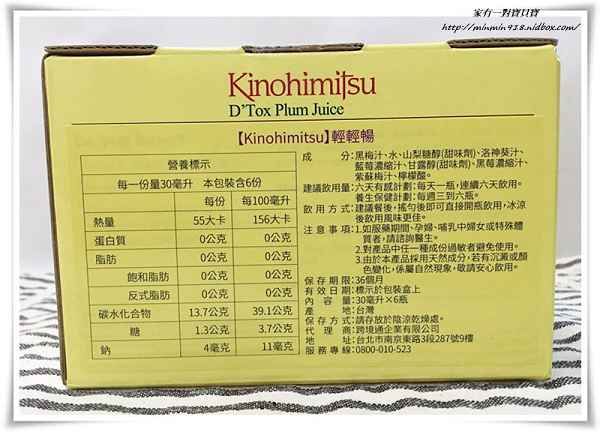 家有一對寶貝寶
http://minmin918.nidbox.com/
Kinohimitsu
D'Tox Plum Juice
【Kinohimitsu】輕輕暢
營養標示
每一份量30毫升 本包裝含6份
每份 每100毫升
熱量 55大卡 156大卡
蛋白質 0公克 0公克
脂肪 0公克 0公克
飽和脂肪 0公克 0公克
反式脂肪 0公克 0公克
碳水化合物 13.7公克 39.1公克
糖 1.3公克 3.7公克
鈉 4毫克 11毫克
成分:黑梅汁、水、山梨糖醇(甜味劑)、洛神葵汁、
藍莓濃縮汁、甘露醇(甜味劑)、黑莓濃縮汁、
紫蘇梅汁、檸檬酸。
建議飲用量:六天有感計劃:每天一瓶,連續六天飲用。
養生保健計劃:每週三到六瓶。
飲用方式:建議餐後,搖勻後即可直接開瓶飲用,冰涼
後飲用風味更佳。
注意事項:1.如服藥期間、孕婦、哺乳中婦女或特殊體
質者,請諮詢醫生。
2.對產品中任一種成份過敏者避免使用。
3.由於本產品採用天然成分,若有沉澱或顏
色變化,係屬自然現象,敬請安心飲用。
保存期限:36個月
有效日期:標示於包裝盒上
內容量:30毫升×6瓶
產地:台灣
保存方式:請存放於陰涼乾燥處。
代理商:跨境通企業有限公司
地址:台北市南京東路3段287號9樓
服務專線:0800-010-523